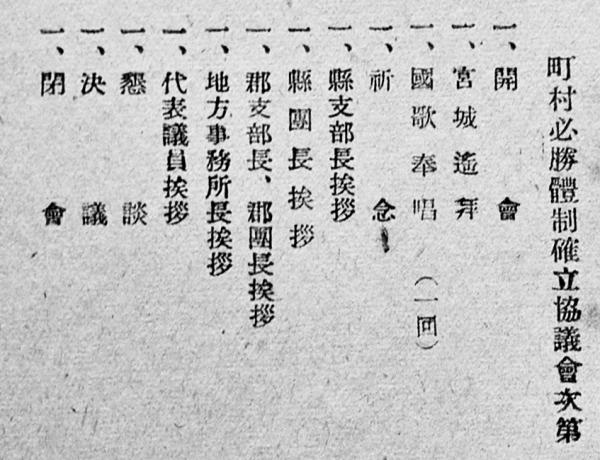 町村必勝體制確立協議會次第
一、開會
一、宮城遙拜
一、國歌奉唱（一回）
一、祈念
一、縣支部長挨拶
一、縣團長挨拶
一、郡支部長、郡團長挨拶
一、地方事務所長挨拶
一、代表議員挨拶
一、懇談
一、決議
一、閉會